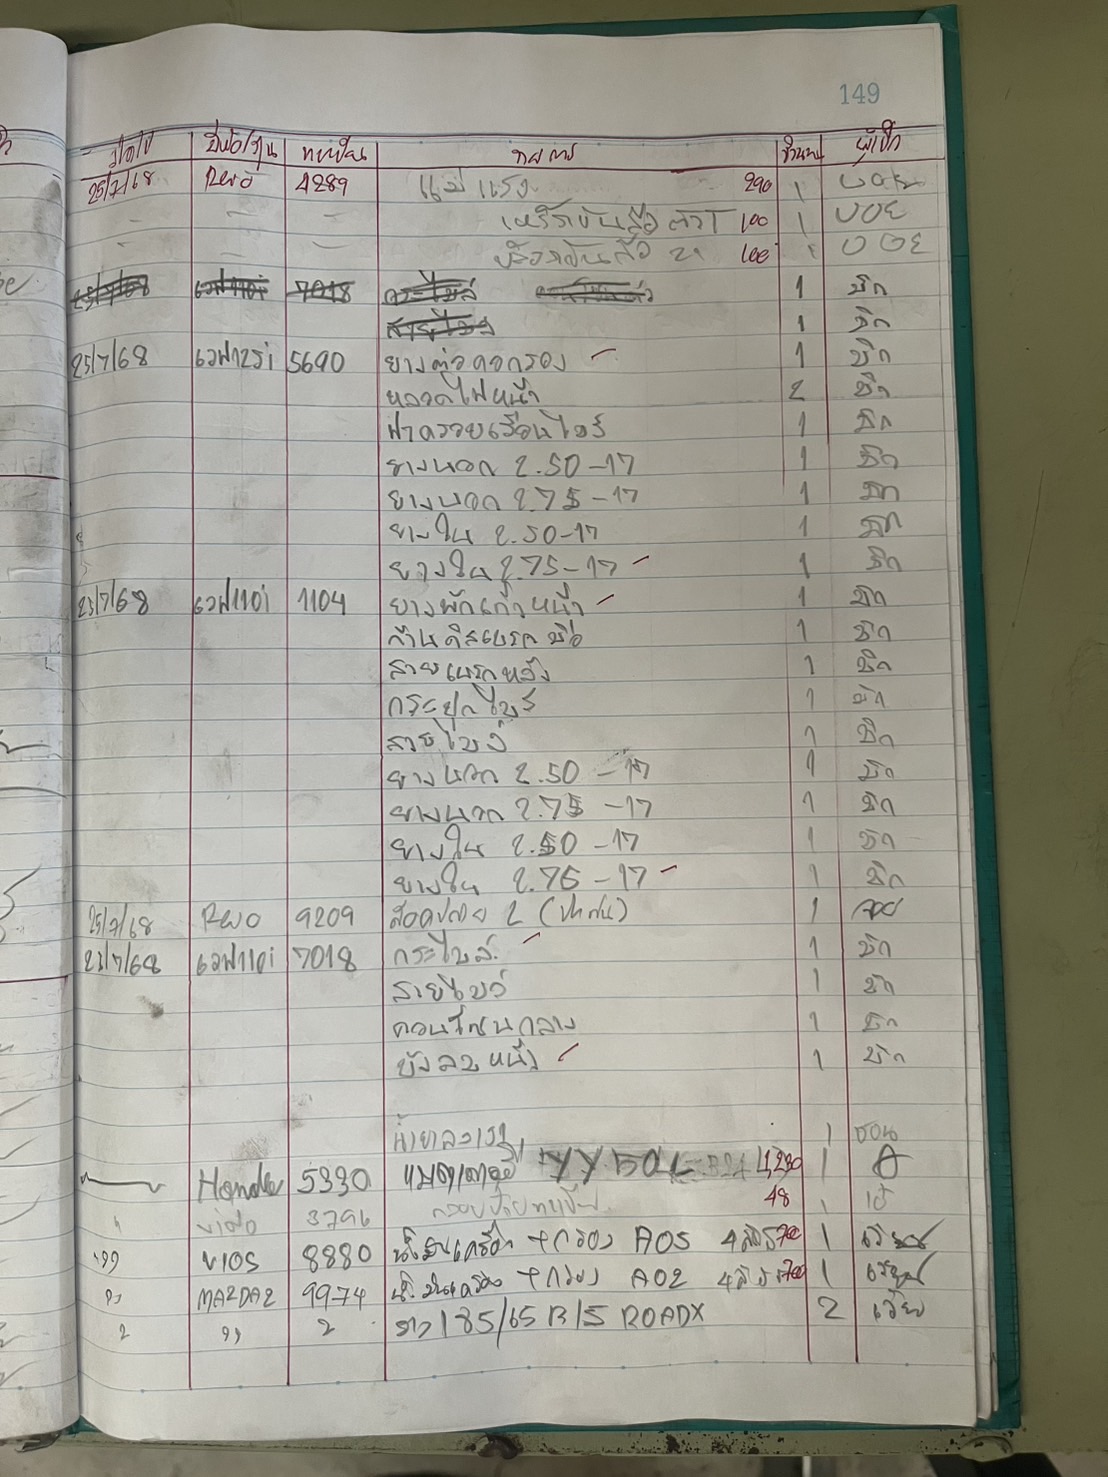 149
ว/ด/ป ยี่ห้อ/รุ่น ทะเบียน รายการ จำนวน ผู้เบิก
25/7/68 Revo 4289 แม่แรง 290 1 บอย
100 1 บอย
100 1 บอย
7018 1 ชัก
1 ชัก
25/7/68 เวฟ125i 5690 ยางต่อคอกรอง 1 ชัก
หลอดไฟหน้า 2 ชัก
ฝาครอบเรือนไมล์ 1 ชัก
ยางนอก 2.50-17 1 ชัก
ยางนอก 2.75-17 1 ชัก
ยางใน 2.50-17 1 ชัก
ยางใน 2.75-17 1 ชัก
23/7/68 เวฟ110i 1104 ยางพักเท้าหน้า 1 ชัก
ก้านดิสเบรคมือ 1 ชัก
สายเบรคหลัง 1 ชัก
กระปุกไมล์ 1 ชัก
สายไมล์ 1 ชัก
ยางนอก 2.50-17 1 ชัก
ยางนอก 2.75-17 1 ชัก
ยางใน 2.50-17 1 ชัก
ยางใน 2.75-17 1 ชัก
25/7/68 Revo 9209 2 1
23/7/68 เวฟ110i 7018 กระไมล์ 1 ชัก
สายไมล์ 1 ชัก
คอนโซนกลาง 1 ชัก
บังลมหน้า 1 ชัก
1
Honda 5330 แบตเตอรี่ 1
วีโก้ 3796 กรอบป้ายทะเบียน 48 1
VIOS 8880 น้ำมันเครื่อง + กรอง A05 4ลิตร 700 1
MAZDA2 9974 น้ำมันเครื่อง + กรอง A02 4ลิตร 700 1
185/65 R15 ROADX 2